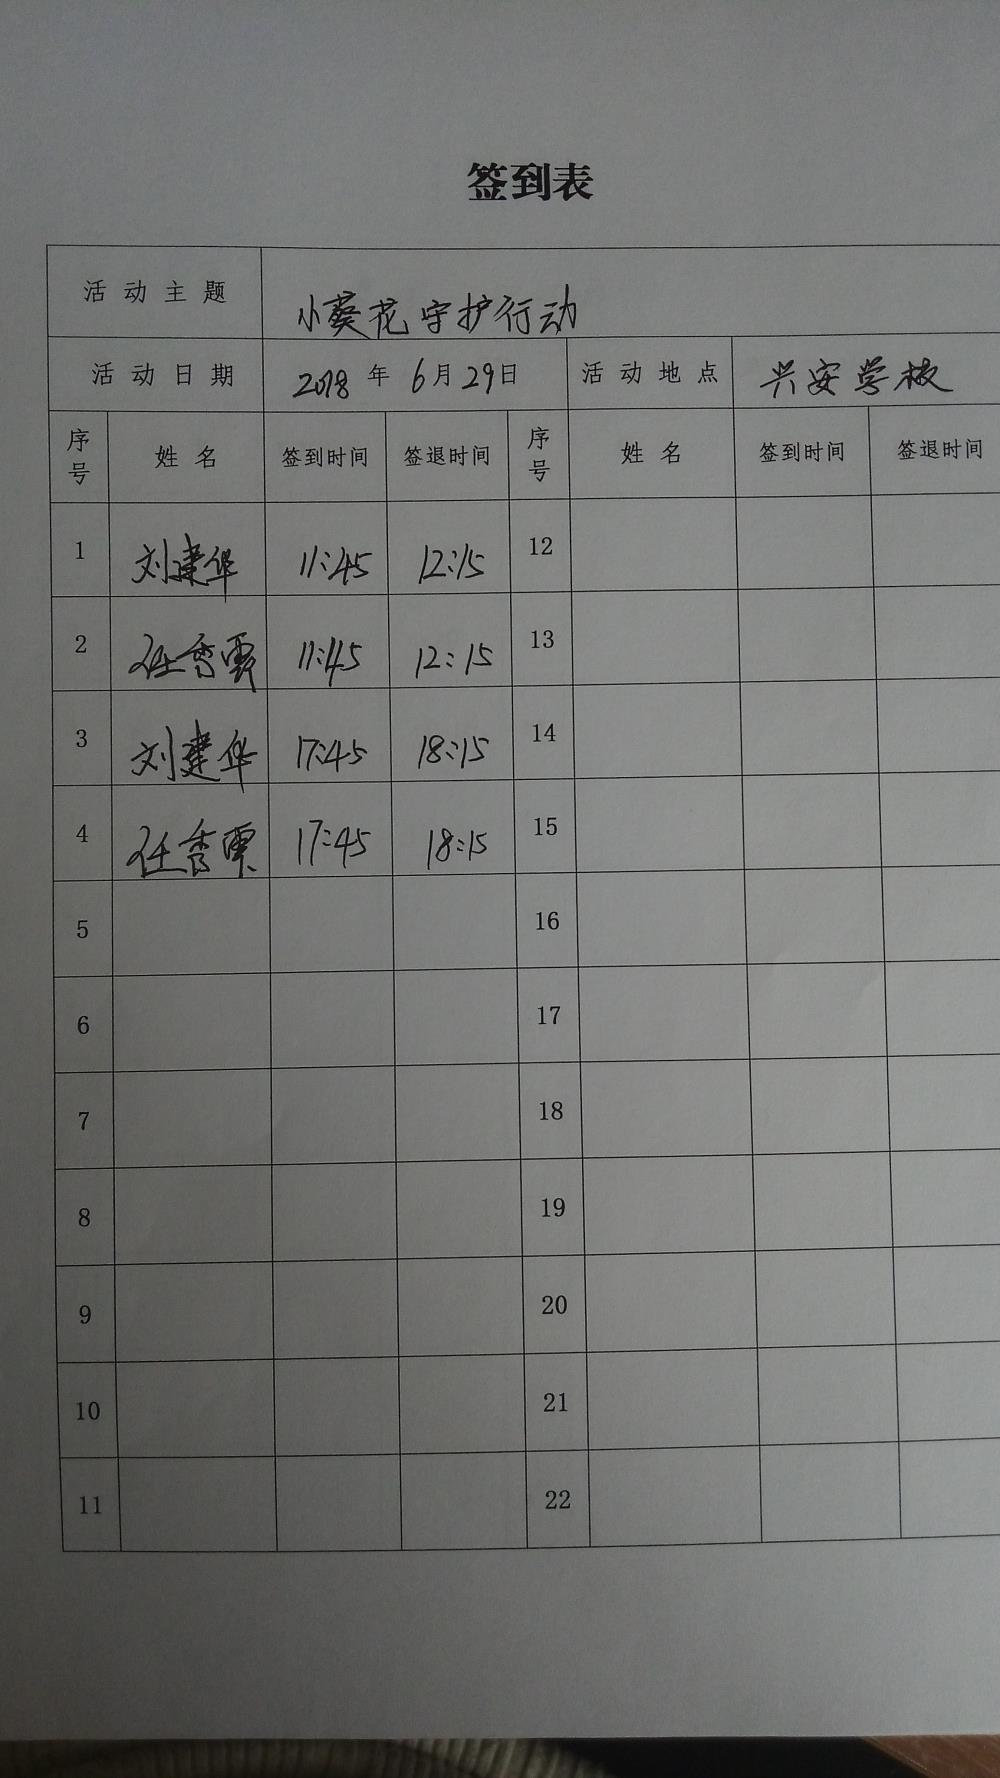 签到表
活动主题 小葵花守护行动
活动日期 2018年6月29日 活动地点 兴安学校
序号 姓名 签到时间 签退时间 序号 姓名 签到时间 签退时间
1 刘建华 11:45 12:15 12
2 任秀云 11:45 12:15 13
3 刘建华 17:45 18:15 14
4 任秀 17:45 18:15 15
5 16
6 17
7 18
8 19
9 20
10 21
11 22